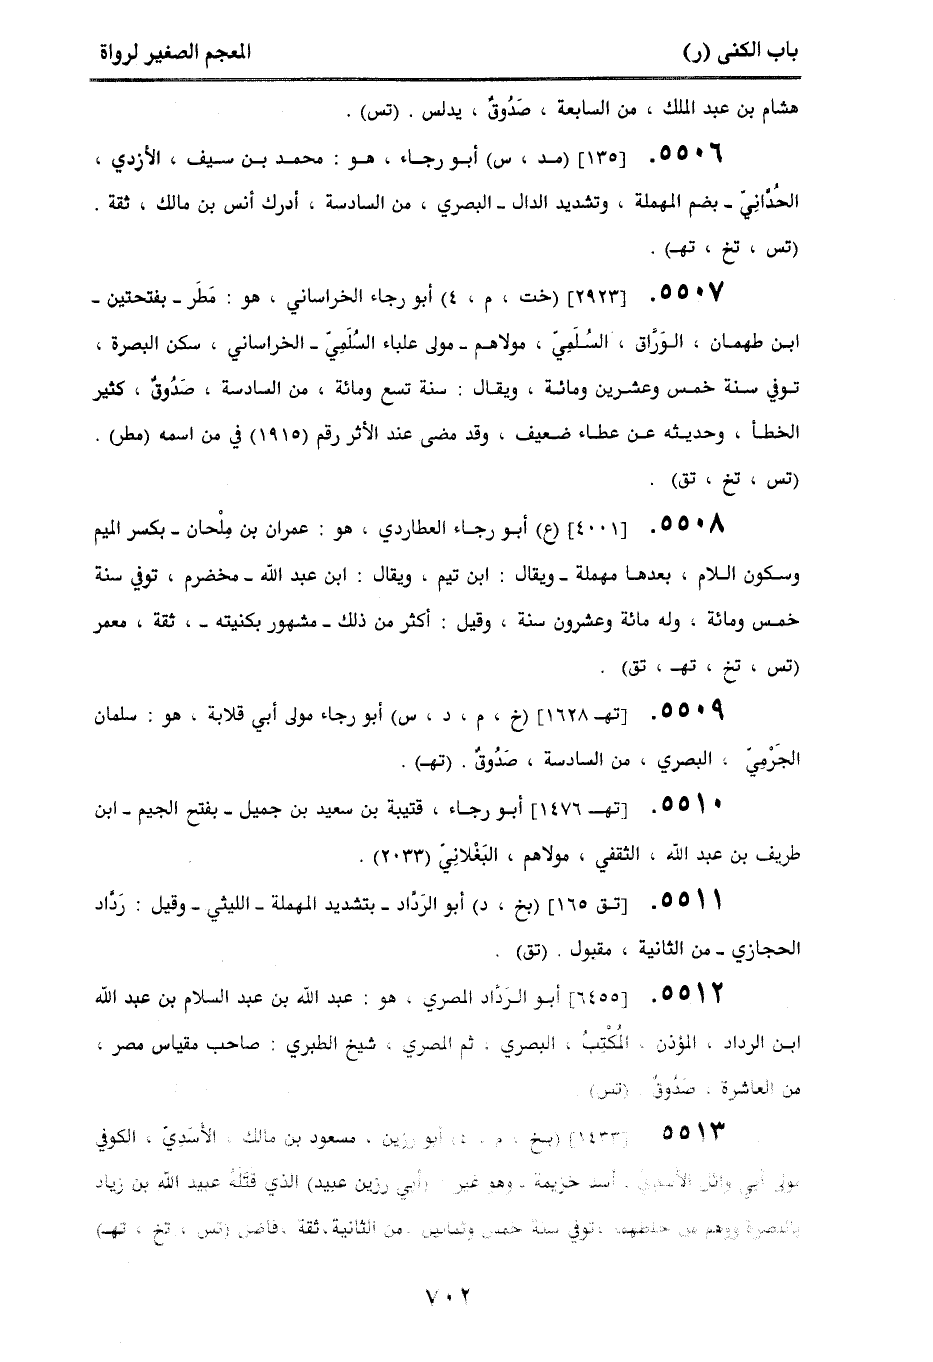 باب الكنى (ر)
المعجم الصغير لرواة
هشام بن عبد الملك ، من السابعة ، صَدُوقٌ ، يدلس . (تس) .
٥٥٠٦. [١٣٥] (مـد ، س) أبـو رجـاء ، هـو : محمـد بـن سـيف ، الأزدي ،
الحُدَّانِيّ ـ بضم المهملة ، وتشديد الدال ـ البصري ، من السادسة ، أدرك أنس بن مالك ، ثقة .
(تس ، تخ ، تهـ) .
٥٥٠٧. [٢٩٢٣] (خت ، م ، ٤) أبو رجاء الخراساني ، هو : مَطَر ـ بفتحتين ـ
ابـن طهمـان ، الـوَرَّاق ، السُلَمِيّ ، مولاهـم ـ مولى علباء السُّلَمِيّ ـ الخراساني ، سكن البصرة ،
تـوفي سـنة خمـس وعشـرين ومائـة ، ويقـال : سنة تسع ومائة ، من السادسة ، صَدُوقٌ ، كثير
الخطـأ ، وحديثـه عـن عطـاء ضـعيف ، وقد مضى عند الأثر رقم (١٩١٥) في من اسمه (مطر) .
(تس ، تخ ، تق) .
٥٥٠٨. [٤٠٠١] (ع) أبـو رجـاء العطاردي ، هو : عمران بن مِلْحان ـ بكسر الميم
وسـكون الـلام ، بعدهـا مهملة ـ ويقال : ابن تيم ، ويقال : ابن عبد الله ـ مخضرم ، توفي سنة
خمـس ومائة ، وله مائة وعشرون سنة ، وقيل : أكثر من ذلك ـ مشهور بكنيته ـ ، ثقة ، معمر
(تس ، تخ ، تهـ ، تق) .
٥٥٠٩. [تهـ ١٦٢٨] (خ ، م ، د ، س) أبو رجاء مولى أبي قلابة ، هو : سلمان
الجَرْمِيّ ، البصري ، من السادسة ، صَدُوقٌ . (تهـ) .
٥٥١٠. [تهـ ١٤٧٦] أبـو رجـاء ، قتيبة بن سعيد بن جميل ـ بفتح الجيم ـ ابن
طريف بن عبد الله ، الثقفي ، مولاهم ، البَغْلانِيّ (٢٠٣٣) .
٥٥١١. [تـق ١٦٥] (بخ ، د) أبو الرَدَّاد ـ بتشديد المهملة ـ الليثي ـ وقيل : رَدَّاد
الحجازي ـ من الثانية ، مقبول . (تق) .
٥٥١٢. [٦٤٥٥] أبـو الـرَدَّاد المصري ، هو : عبد الله بن عبد السلام بن عبد الله
ابـن الرداد ، المؤذن ، المُكْتِبُ ، البصري ، ثم المصري ، شيخ الطبري : صاحب مقياس مصر ،
من العاشرة ، صَدُوقٌ . (تس)
٥٥١٣ [١٤٣٣] (بـخ ، م ، ٤) أبو رزين ، مسعود بن مالك ، الأَسَدِيّ ، الكوفي
مولى أبي وائل الأسدي ، أسد خزيمة ـ وهو غير (أبي رزين عبيد) الذي قَتَلَهُ عبيد الله بن زياد
بالبصرة ووهم من خلطهما ، توفي سنة خمس وثمانين ، من الثانية ، ثقة ، فاضل (تس ، تخ ، تهـ)
٧٠٢